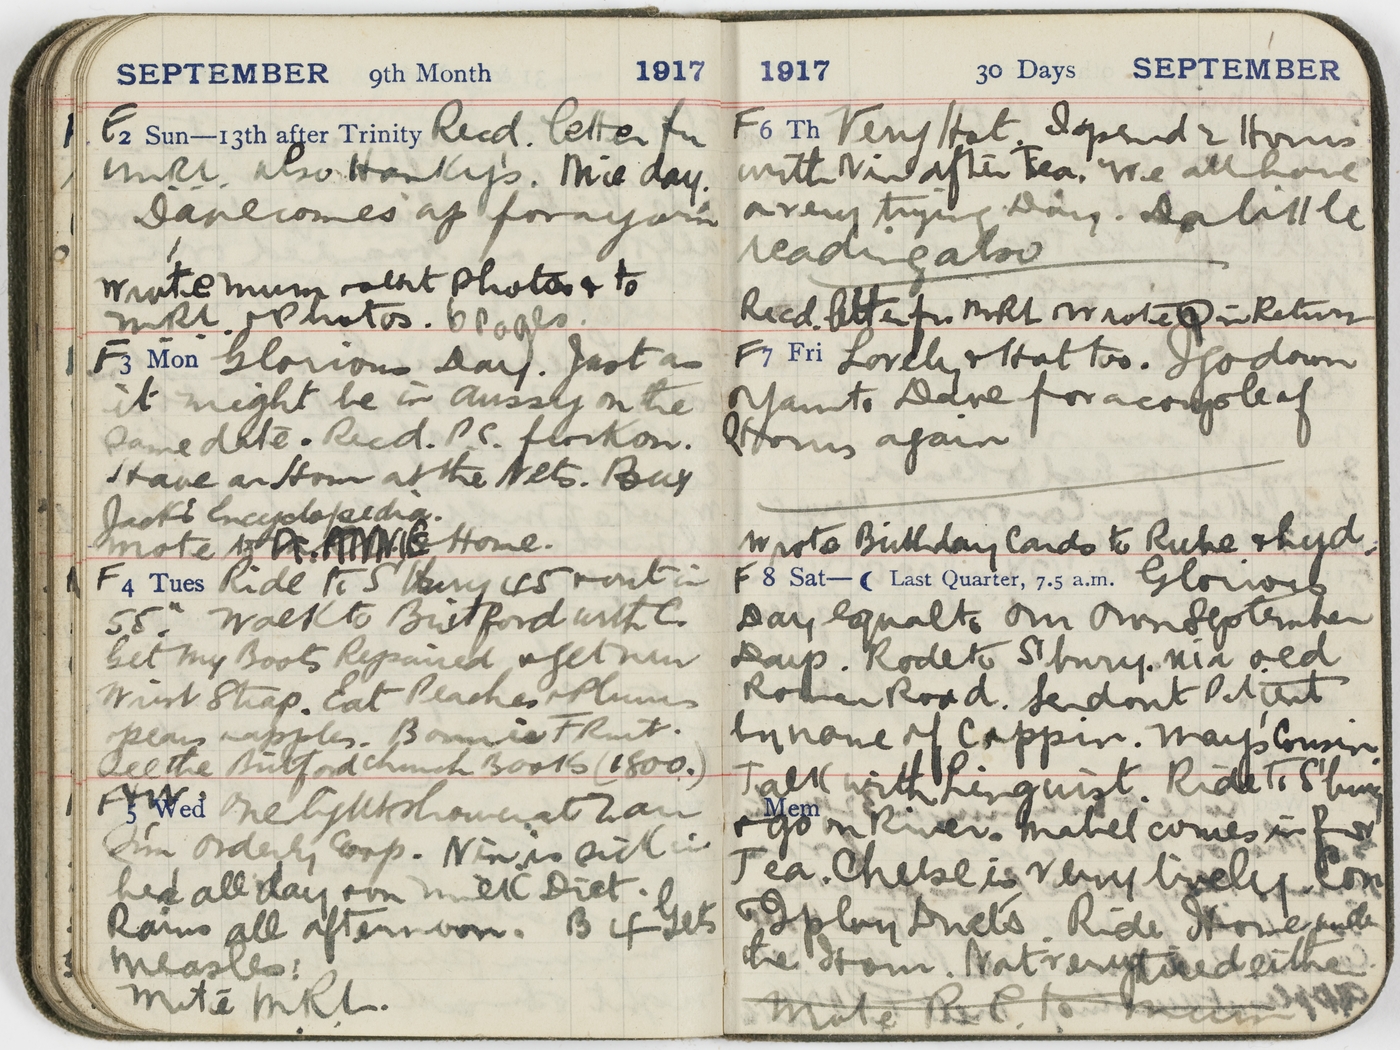 SEPTEMBER 9th Month 1917
F 2 Sun—13th after Trinity Recd. letter fm
MRL. also Hanky's. Nice day.
Dave comes up for a yarn
Wrote Mum & sent Photos & to
MRL. & Photos. 6 pages.
F 3 Mon Glorious Day. Just as
it might be in Aussy on the
same date. Recd. P.C. from
Have an Hour at the Nets. Buy
Jack's Encyclopedia.
Wrote to Home.
F 4 Tues Ride to S'bury 45 & out in
55." Walk to Britford with C.
Get My Boots Repaired & get new
Wrist Strap. Eat Peaches & Plums
& pears & apples. Bonnie Fruit.
See the Britford Church Books (1800.)
F 5 Wed One light shower at 7 am
I'm Orderly Corp. Nin is sick in
bed all day & on milk Diet.
Rains all afternoon. B 4 Gets
Measles!
Write MRL.
1917 30 Days SEPTEMBER
F 6 Th Very Hot. I spend 2 Hours
with Nin after Tea. We all have
a very trying Day. Do a little
reading also
Recd. letter fm MRL Wrote in Return
F 7 Fri Lovely & Hot too. I go down
& yarn to Dave for a couple of
Hours again
Wrote Birthday Cards to Rube & Syd.
F 8 Sat— Last Quarter, 7.5 a.m. Glorious
Day equal to Our Own September
Days. Rode to S'bury. via old
Roman Road. Send out Patient
by name of Coppin. May's Cousin.
Talk with Linquist. Ride to S'bury
Mem
& go on River. Mabel comes in for
Tea. Chelse is very lively. Con
& I play Duets. Ride Home inside
the Hour. Not very tired either
Wrote P.C. to Mum